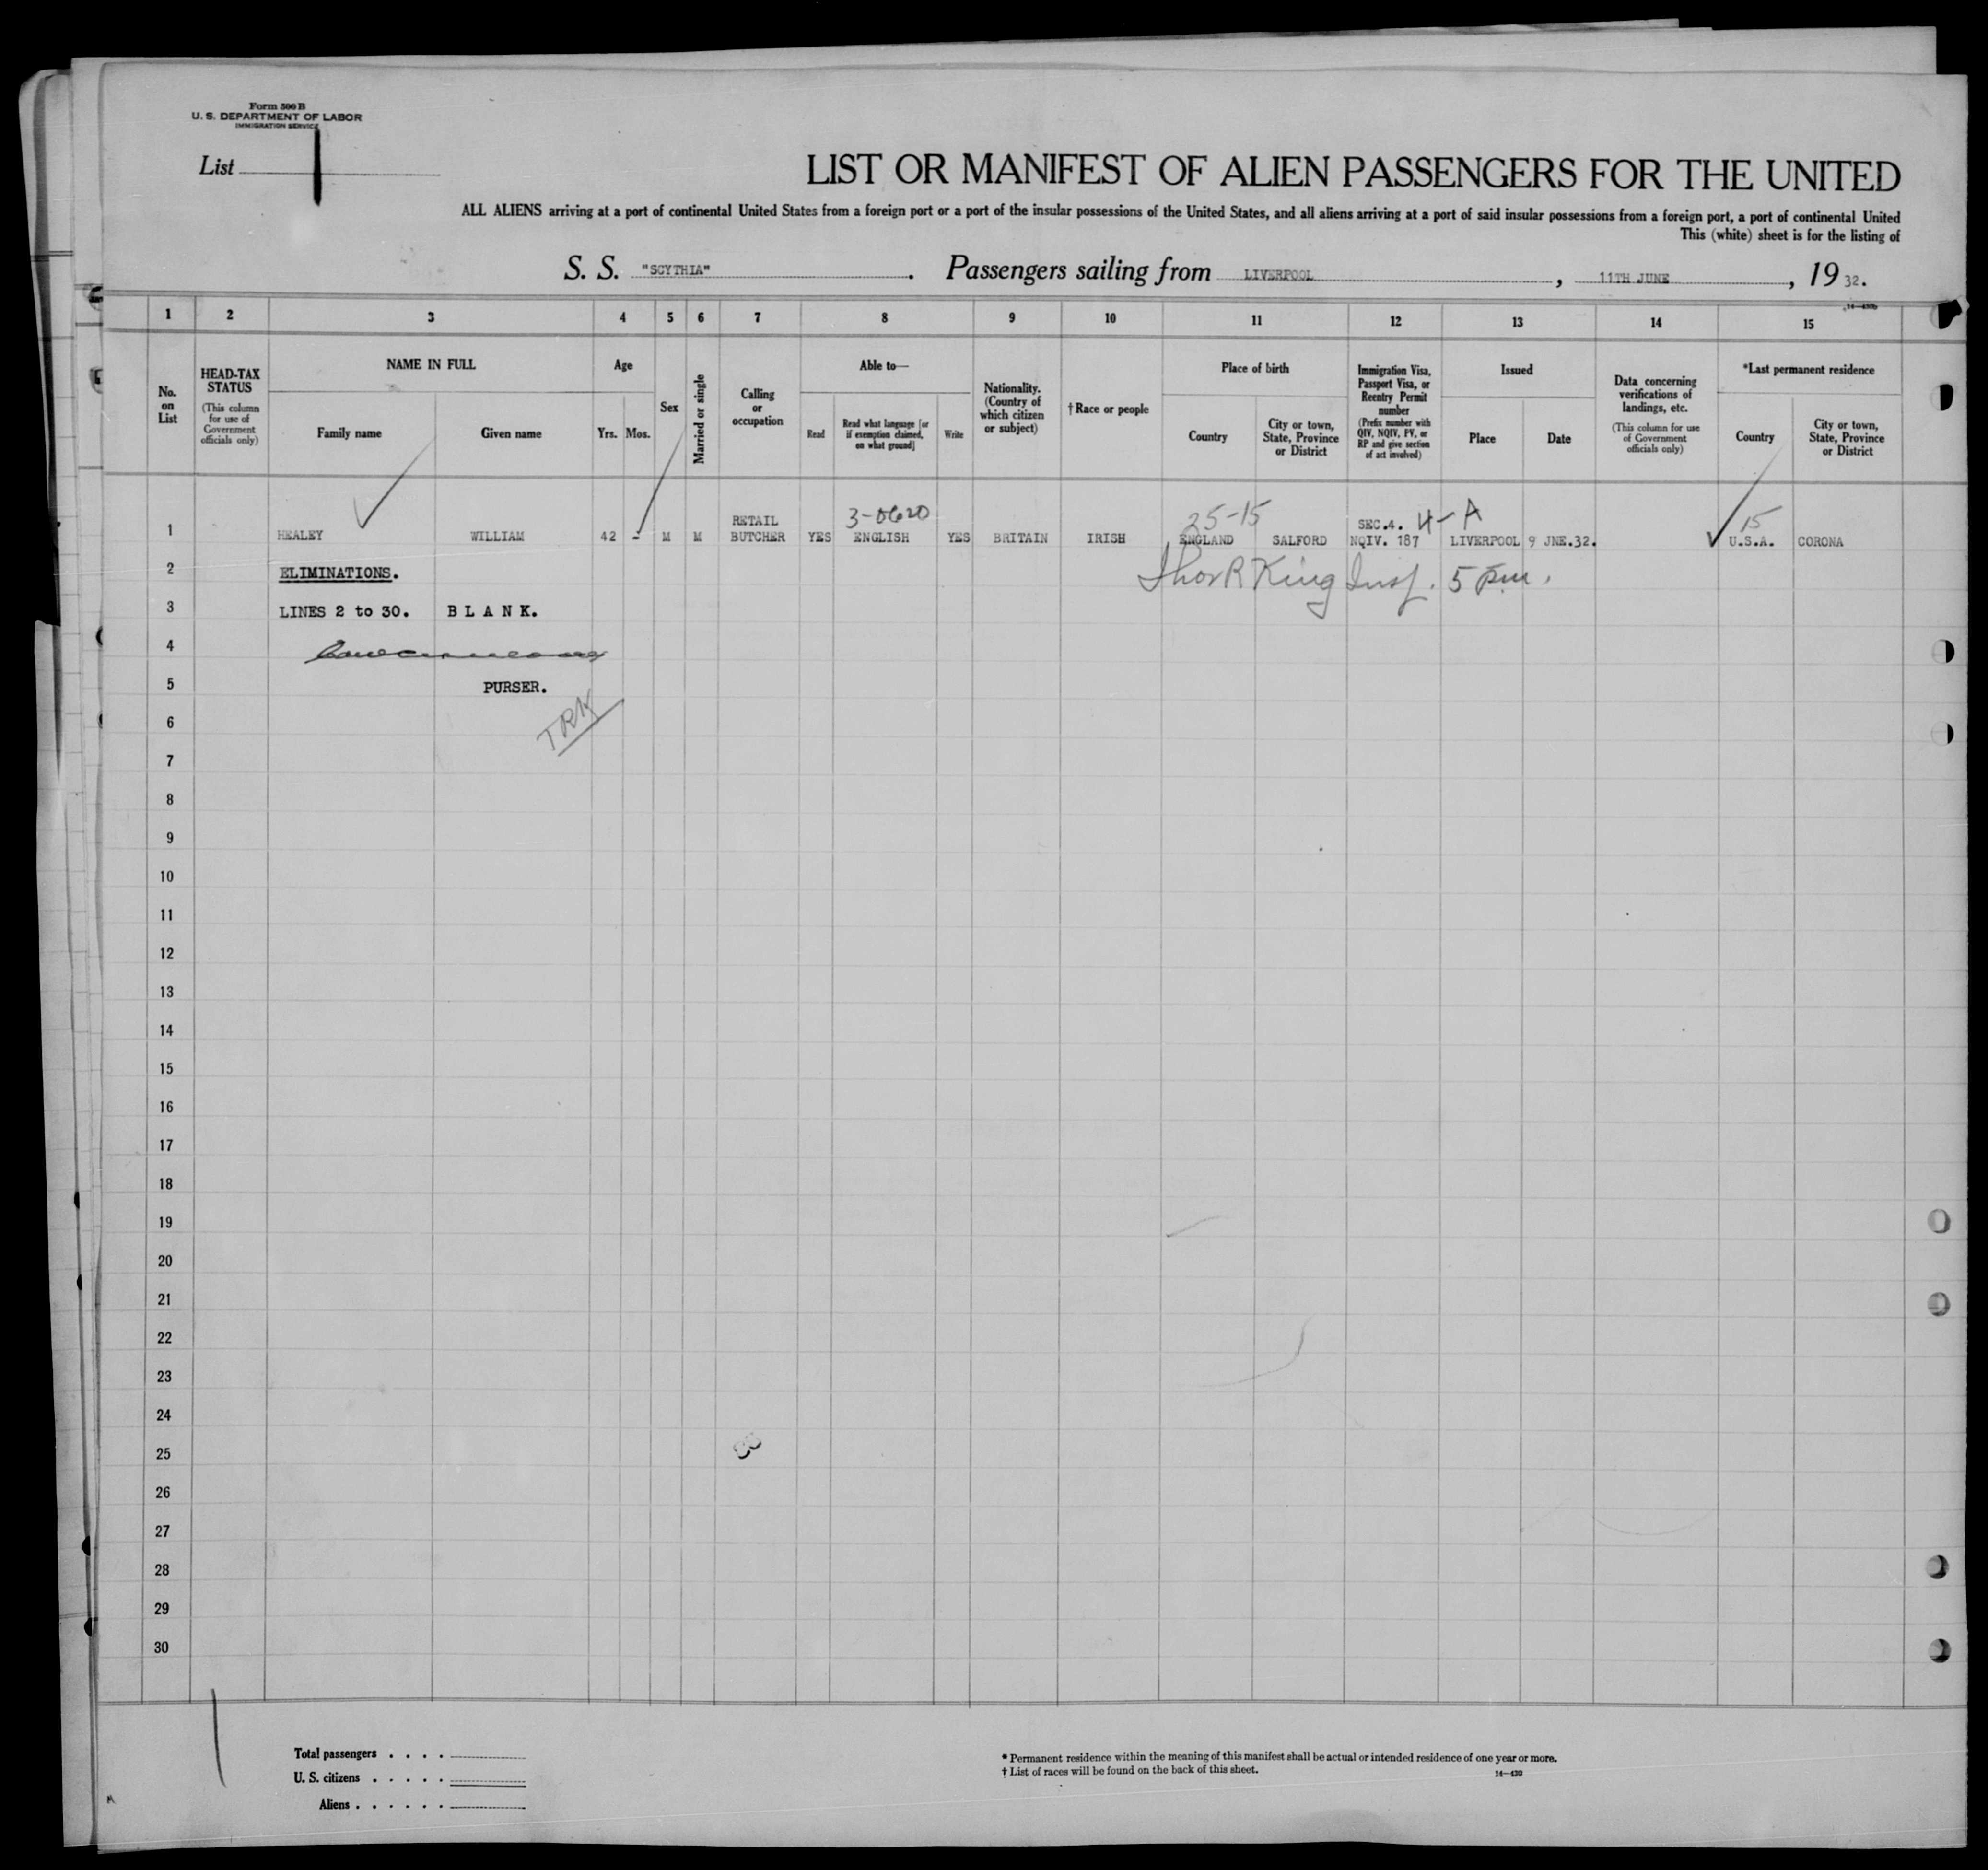 Form 500 B
U. S. DEPARTMENT OF LABOR
IMMIGRATION SERVICE
List 1
LIST OR MANIFEST OF ALIEN PASSENGERS FOR THE UNITED
ALL ALIENS arriving at a port of continental United States from a foreign port or a port of the insular possessions of the United States, and all aliens arriving at a port of said insular possessions from a foreign port, a port of continental United
This (white) sheet is for the listing of
S. S. "SCYTHIA". Passengers sailing from LIVERPOOL, 11TH JUNE, 1932.
1 2 3 4 5 6 7 8 9 10 11 12 13 14 15
No. on List
HEAD-TAX STATUS
(This column for use of Government officials only)
NAME IN FULL
Family name
Given name
Age
Yrs.
Mos.
Sex
Married or single
Calling or occupation
Able to—
Read
Read what language [or if exemption claimed, on what ground]
Write
Nationality. (Country of which citizen or subject)
† Race or people
Place of birth
Country
City or town, State, Province or District
Immigration Visa, Passport Visa, or Reentry Permit number
(Prefix number with QIV, NQIV, PV, or RP and give section of act involved)
Issued
Place
Date
Data concerning verifications of landings, etc.
(This column for use of Government officials only)
*Last permanent residence
Country
City or town, State, Province or District
3-0620 25-15 4-A 15
RETAIL SEC.4.
1 HEALEY WILLIAM 42 - M M BUTCHER YES ENGLISH YES BRITAIN IRISH ENGLAND SALFORD NQIV. 187 LIVERPOOL 9 JNE.32. U.S.A. CORONA
2 ELIMINATIONS. Thos R King Insp. 5 pm.
3 LINES 2 to 30. B L A N K.
4
5 PURSER.
TRK
6
7
8
9
10
11
12
13
14
15
16
17
18
19
20
21
22
23
24
25
26
27
28
29
30
Total passengers . . . .
U. S. citizens . . . . .
Aliens . . . . . .
* Permanent residence within the meaning of this manifest shall be actual or intended residence of one year or more.
† List of races will be found on the back of this sheet.
14—430